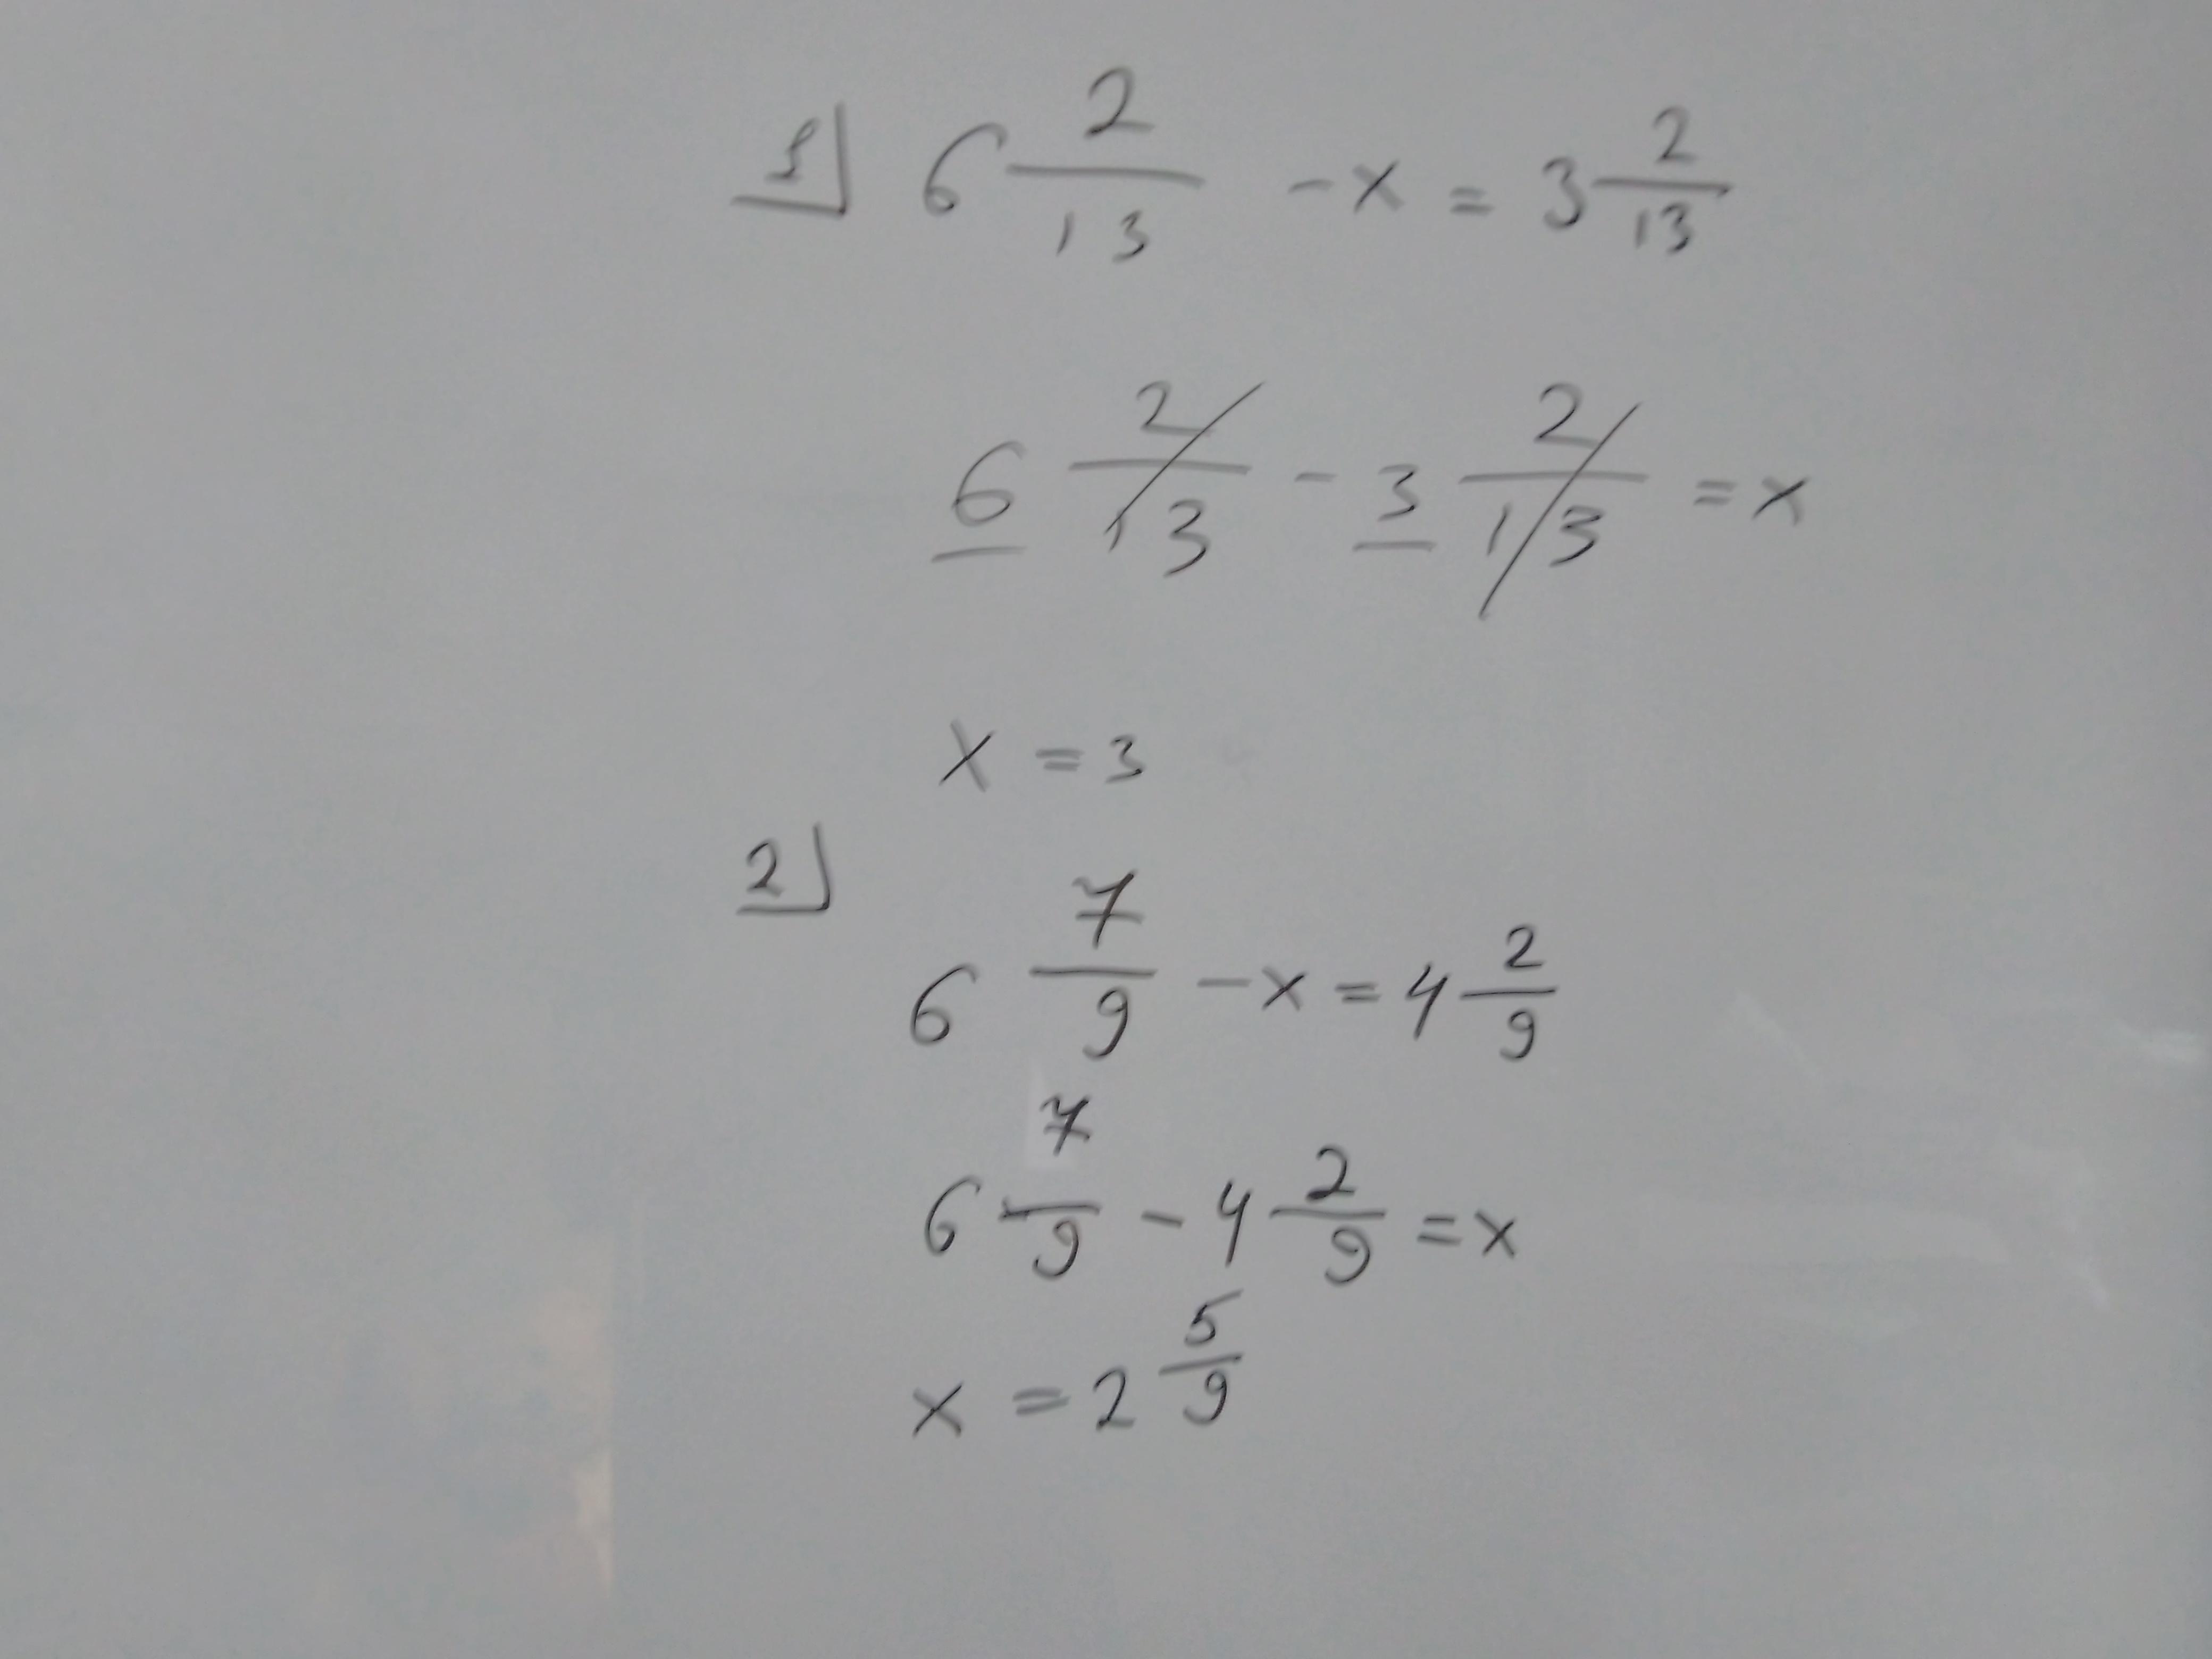 1) 6 2/13 - x = 3 2/13
6 2/13 - 3 2/13 = x
x = 3
2)
6 7/9 - x = 4 2/9
6 7/9 - 4 2/9 = x
x = 2 5/9